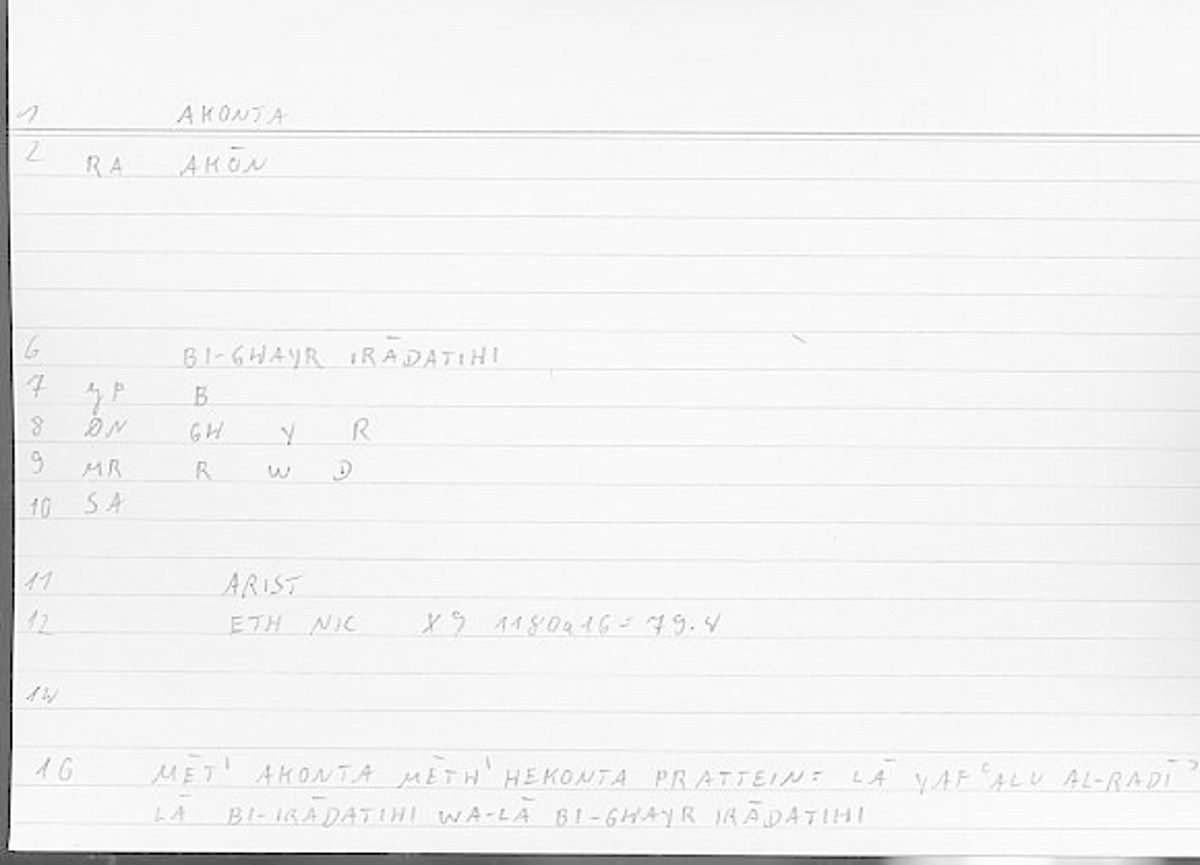 1 AKONTA
2 RA AKŌN
6 BI-GHAYR IRĀDATIHI
7 yP B
8 ØN GH Y R
9 MR R W D
10 SA
11 ARIST
12 ETH NIC X9 1180a16=79.4
14
16 MĒT' AKONTA MĒTH' HEKONTA PRATTEIN: LĀ YAFʿALU AL-RADĪʾ
LĀ BI-IRĀDATIHI WA-LĀ BI-GHAYR IRĀDATIHI